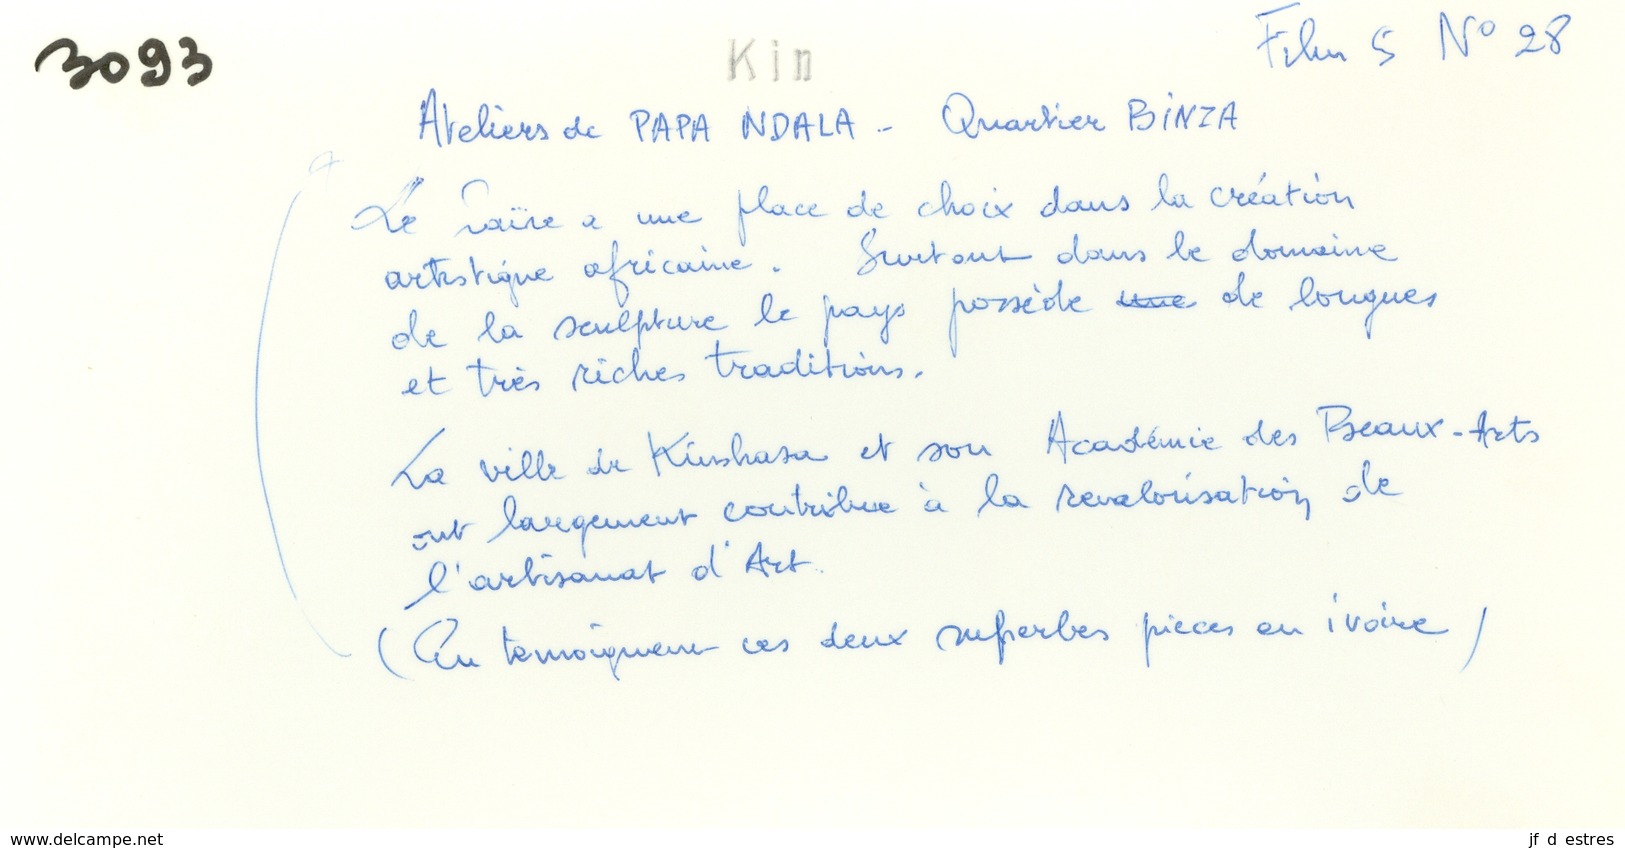 3093
Kin
Film 5 N° 28
Ateliers de PAPA NDALA - Quartier BINZA
Le Zaïre a une place de choix dans la création
artistique africaine. Surtout dans le domaine
de la sculpture le pays possède une de longues
et très riches traditions.
La ville de Kinshasa et son Académie des Beaux-Arts
ont largement contribué à la revalorisation de
l'artisanat d'Art.
(En temoignent ces deux superbes pieces en ivoire)
www.delcampe.net
jf d estres